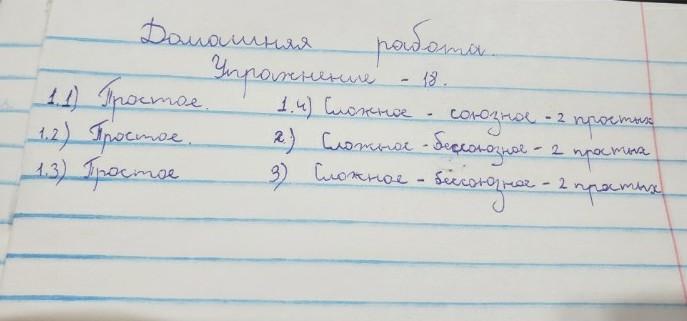 Домашняя работа.
Упражнение - 18.
1.1) Простое. 1.4) Сложное - союзное - 2 простых
1.2) Простое. 2.) Сложное - бессоюзное - 2 простых
1.3) Простое 3) Сложное - бессоюзное - 2 простых